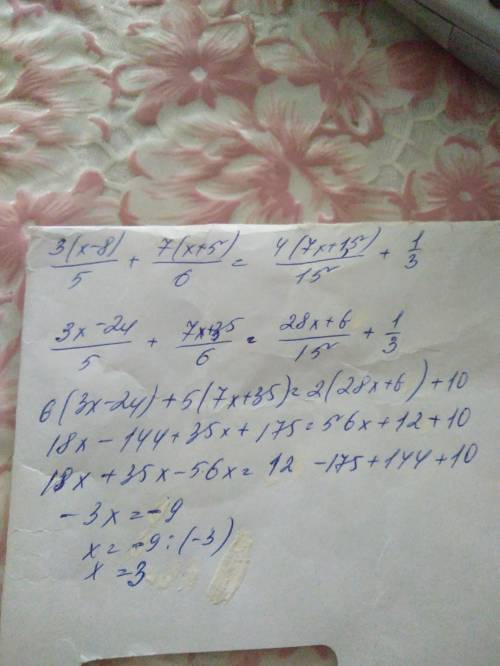 3(x-8)/5 + 7(x+5)/6 = 4(7x+1,5)/15 + 1/3
3x-24/5 + 7x+35/6 = 28x+6/15 + 1/3
6(3x-24)+5(7x+35)=2(28x+6)+10
18x-144+35x+175=56x+12+10
18x+35x-56x=12-175+144+10
-3x=-9
x=-9:(-3)
x=3